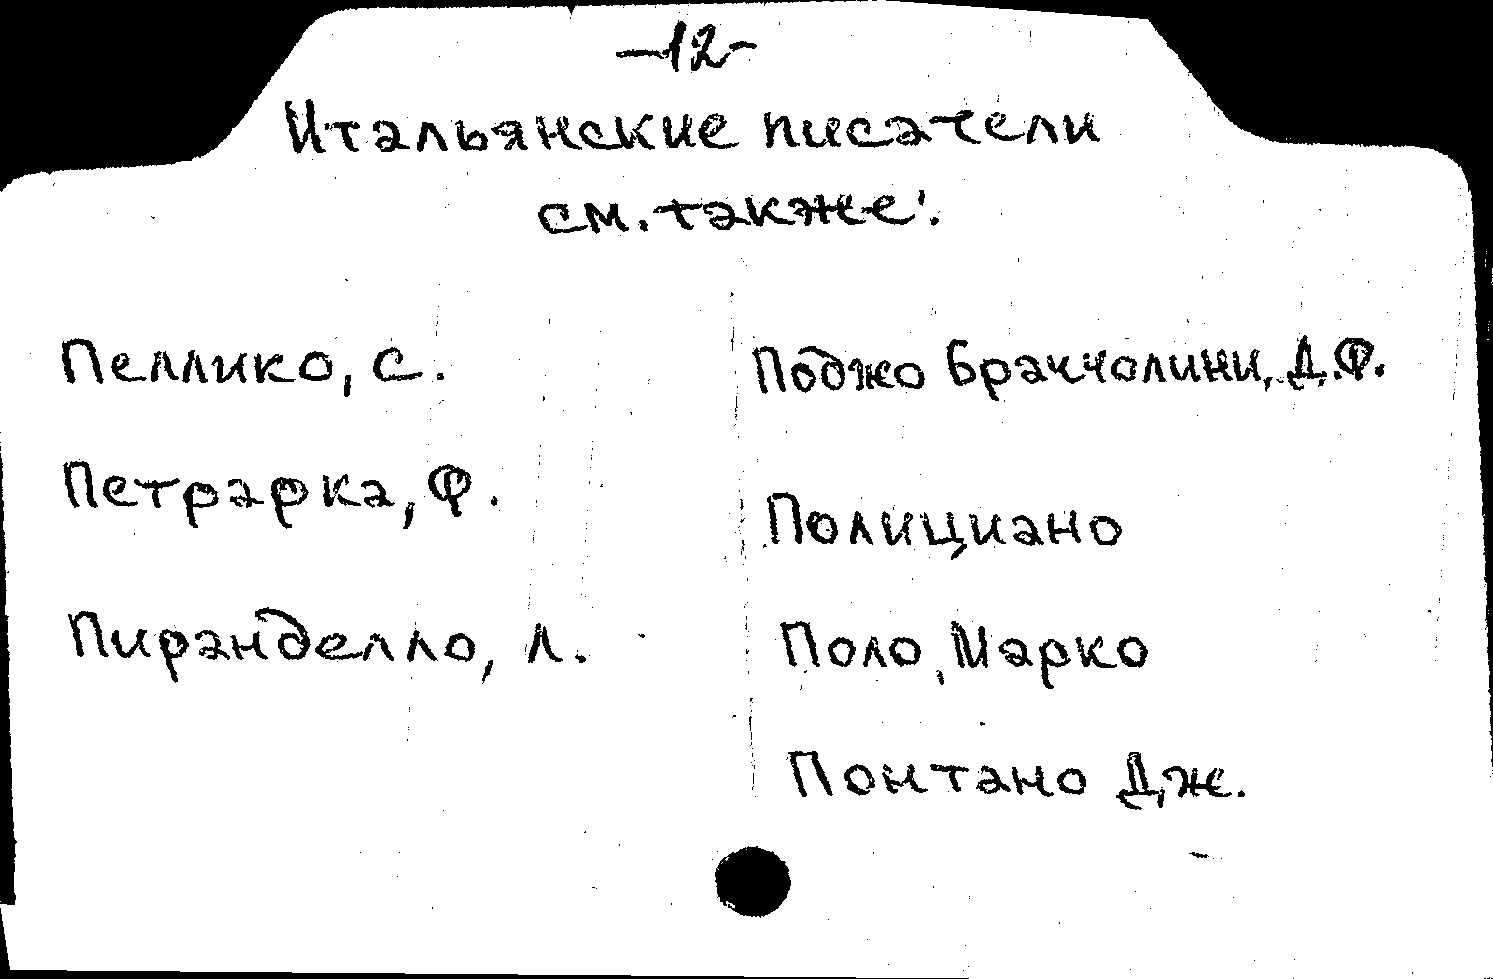 -12-
Итальянские писатели
см. также:
Пеллико, С.
Петрарка, Ф.
Пиранделло, Л.
Поджо Браччолини, Д.Ф.
Полициано
Поло, Марко
Понтано Дж.